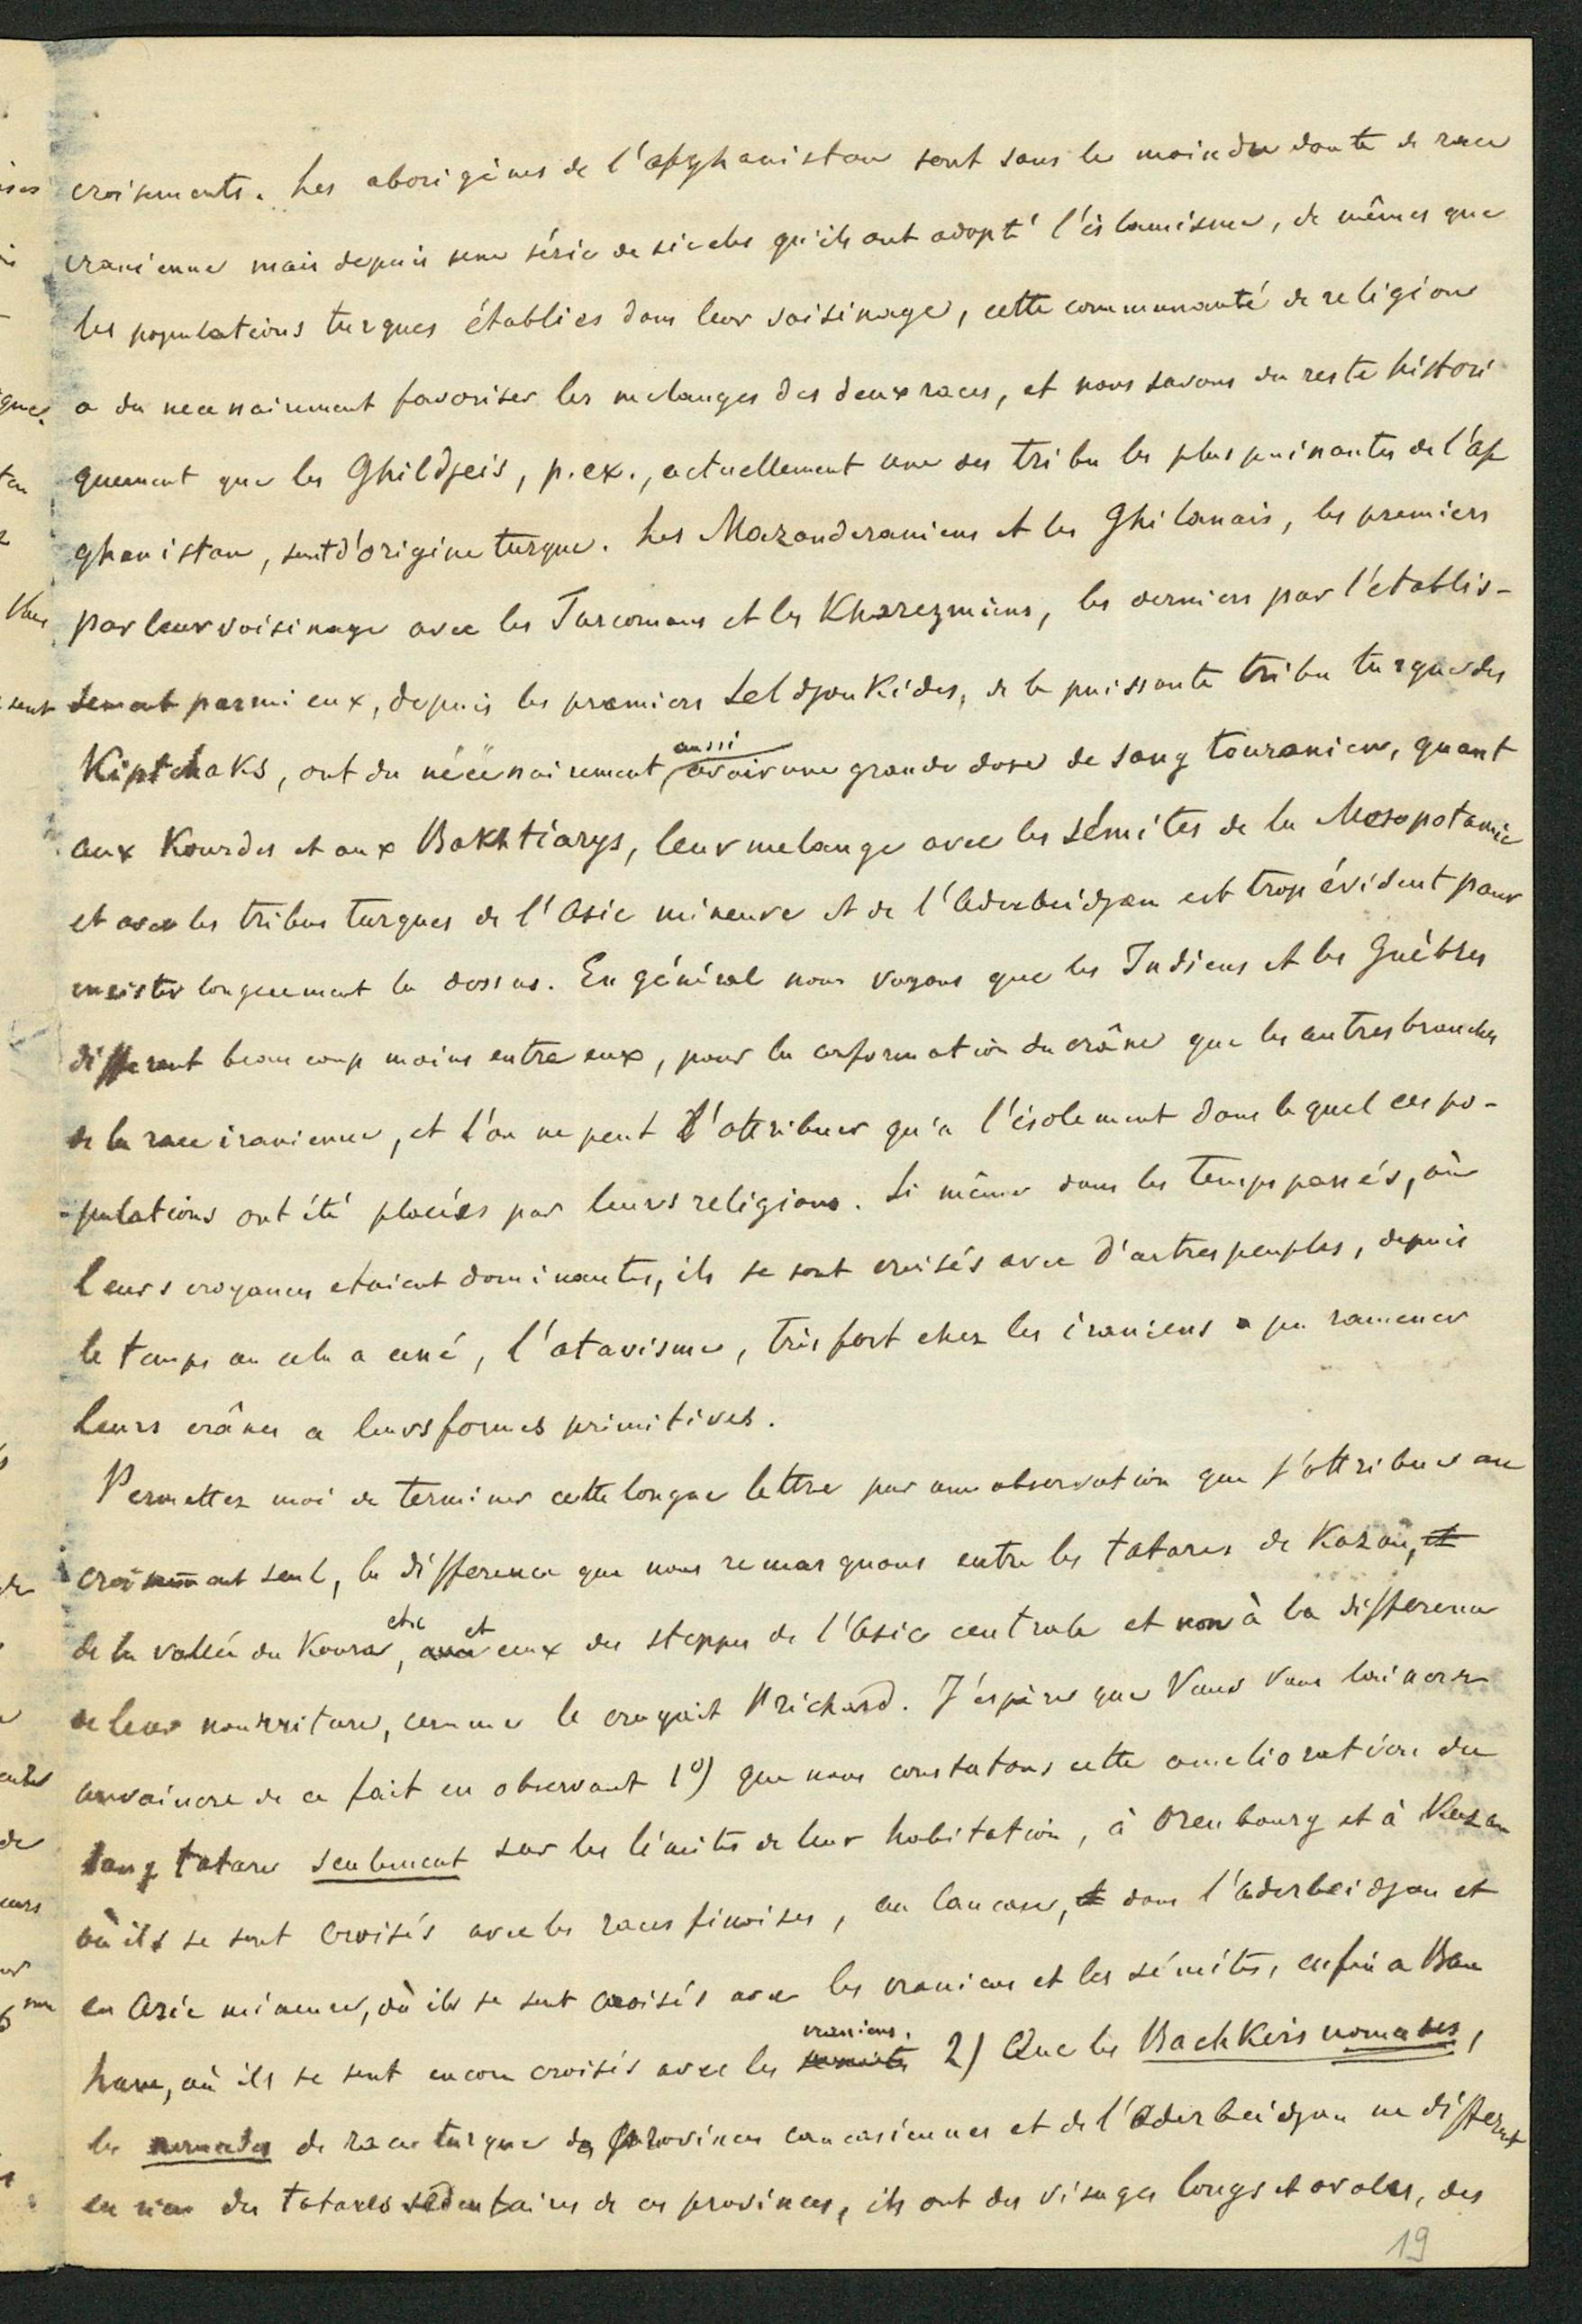 croisements. Les aborigènes de l'afghanistan sont sans le moindre doute de race
iranienne mais depuis une série de siècles qu'ils ont adopté l'islamisme, de mêmes que
les populations turques établies dans leur voisinage, cette communauté de religion
a du necessairement favoriser les melanges des deux races, et nous savons du reste histori
quement que les Ghildjeis, p. ex., actuellement une des tribu les plus puissantes de l'af
ghanistan, sont d'origine turque. Les Mazanderaniens et les Ghilanais, les premiers
par leur voisinage avec les Turcomans et les Kharezmiens, les derniers par l'établis-
sement parmi eux, depuis les premiers Seldjoukides, de la puissante tribu turque des
Kiptchaks, ont du nécessairement aussi avoir une grande dose de sang touranien, quant
aux Kourdes et aux Bakhtiarys, leur melange avec les sémites de la Mesopotamie
et avec les tribus turques de l'Asie mineure et de l'Aderbeidjan est trop évident pour
insister longuement la dessus. En général nous voyons que les Indiens et les Guèbres
different beaucoup moins entre eux, pour la conformation du crâne que les autres branches
de la race iranienne, et l'on ne peut l'attribuer qu'a l'isolement dans lequel ces po-
pulations ont été placées par leurs religions. Si même dans les temps passés, où
leurs croyances etaient dominantes, ils se sont croisés avec d'autres peuples, depuis
le temps ou cela a cessé, l'atavisme, très fort chez les iraniens a pu ramener
leurs crânes a leurs formes primitives.
Permettez moi de terminer cette longue lettre par une observation que j'attribue au
croisement seul, la difference que nous remarquons entre les tatares de Kazan, et
de la vallée du Koura, etc avec et ceux des steppes de l'Asie centrale et non à la difference
de leur nourriture, comme le croyait Prichard. J'espère que Vous Vous laisserez
convaincre de ce fait en observant 1º) que nous constatons cette amelioration du
sang tatare seulement sur les limites de leur habitation, à Orenbourg et à Kazan
où ils se sont croisés avec les races finoises, au Caucase, et dans l'Aderbeidjan et
en Asie mineure, où ils se sont croisés avec les iraniens et les sémites, enfin a Bou
hara, où ils se sont encore croisés avec les iraniens. 2) Que les Bachkirs nomades,
les nomades de race turque des provinces caucasiennes et de l'Aderbeidjan ne different
en rien des tatares sédentaires de ces provinces, ils ont des visages longs et ovales, des
19